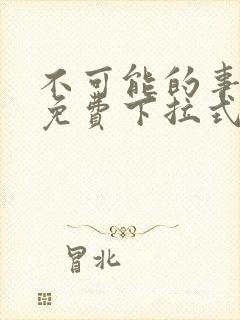 不可能的事
免费下拉式
冒北